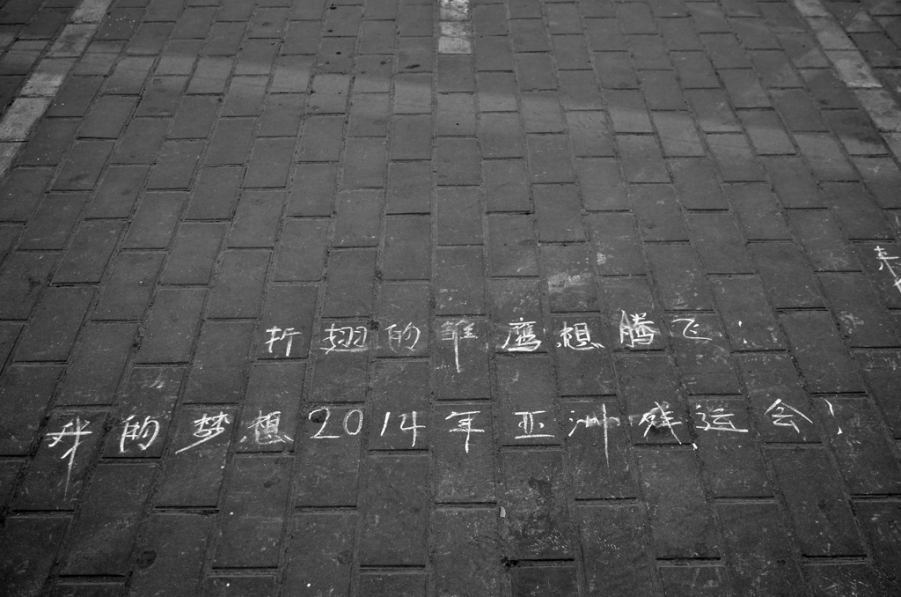 折翅的雏鹰想腾飞.
我的梦想2014年亚洲残运会,
来